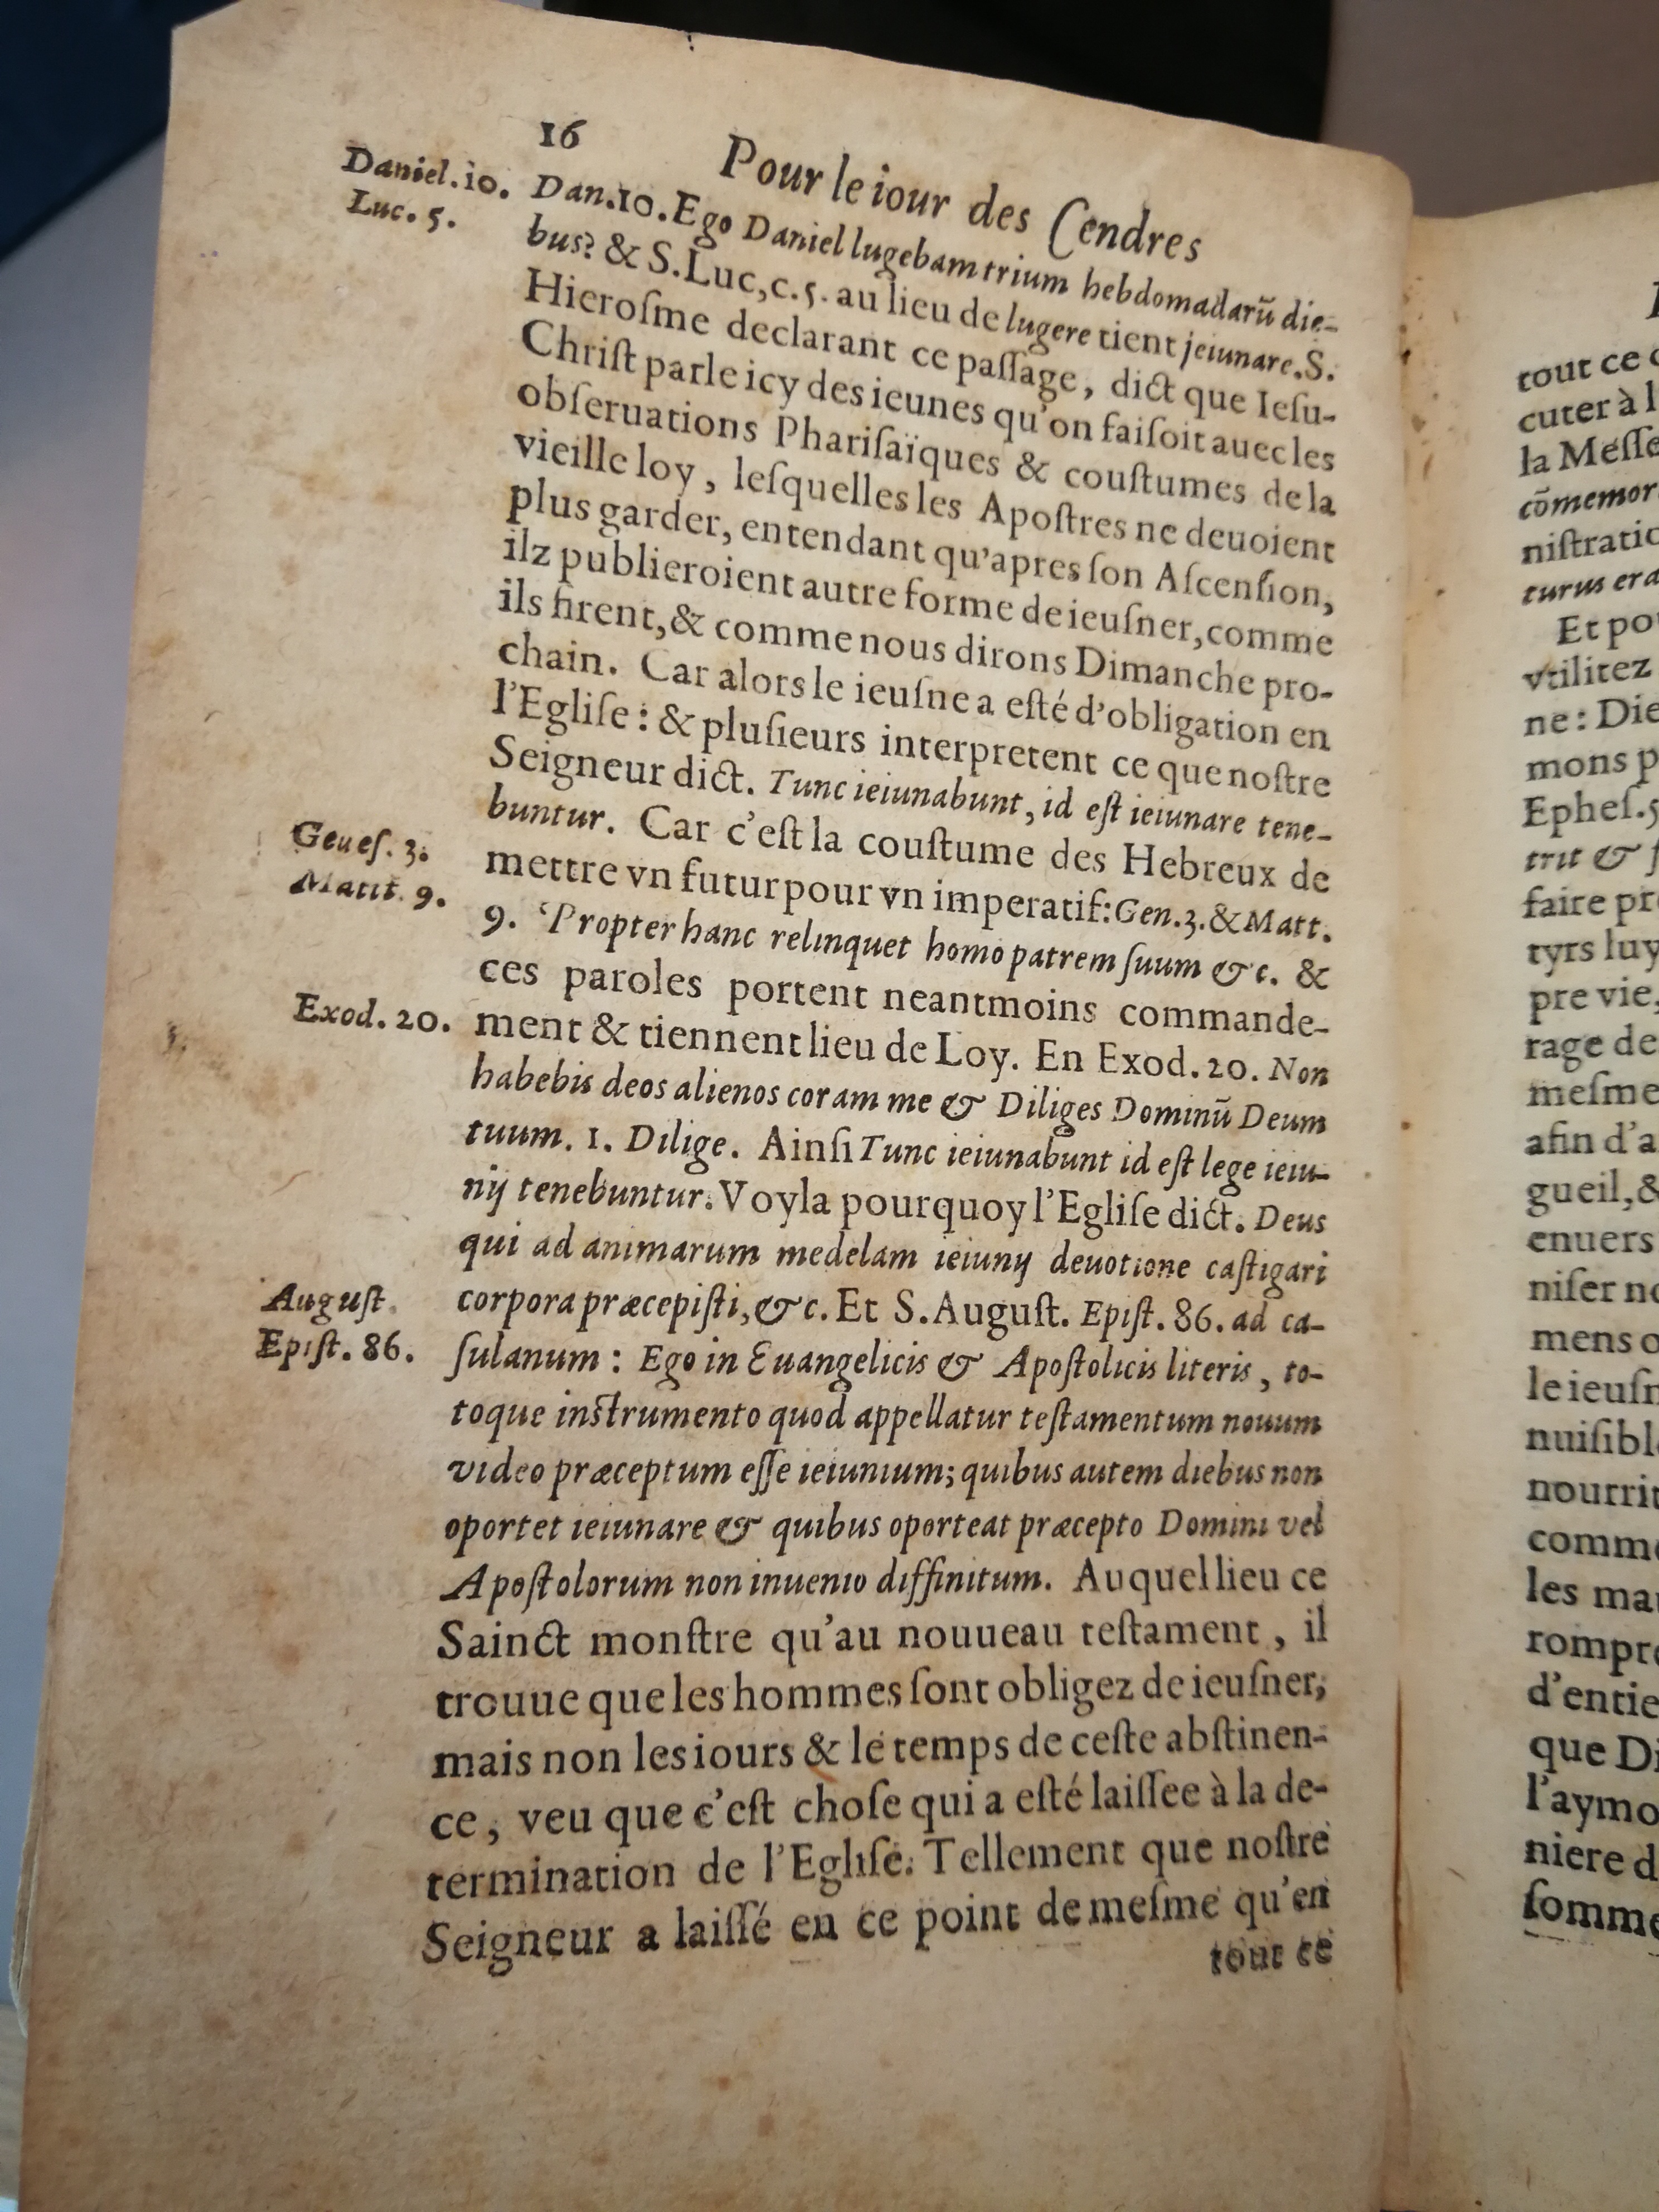 16
Pour le iour des Cendres
Daniel. 10.
Luc. 5.
Dan. 10. Ego Daniel lugebam trium hebdomadarũ die-
bus? & S. Luc, c. 5. au lieu de lugere tient jeiunare. S.
Hieroſme declarant ce paſſage, dict que Ieſu-
Chriſt parle icy des ieunes qu'on faiſoit auec les
obſeruations Phariſaïques & couſtumes de la
vieille loy, leſquelles les Apoſtres ne deuoient
plus garder, entendant qu'apres ſon Aſcenſion,
ilz publieroient autre forme de ieuſner, comme
ils firent, & comme nous dirons Dimanche pro-
chain. Car alors le ieuſne a eſté d'obligation en
l'Egliſe : & pluſieurs interpretent ce que noſtre
Seigneur dict. Tunc ieiunabunt, id eſt ieiunare tene-
buntur. Car c'eſt la couſtume des Hebreux de
Geueſ. 3.
Matt. 9.
mettre vn futur pour vn imperatif: Gen. 3. & Matt.
9. Propter hanc relinquet homo patrem ſuum &c. &
ces paroles portent neantmoins commande-
Exod. 20.
ment & tiennent lieu de Loy. En Exod. 20. Non
habebis deos alienos coram me & Diliges Dominũ Deum
tuum. 1. Dilige. Ainſi Tunc ieiunabunt id eſt lege ieiu-
nij tenebuntur. Voyla pourquoy l'Egliſe dict. Deus
qui ad animarum medelam ieiunij deuotione caſtigari
Auguſt.
Epiſt. 86.
corpora præcepiſti, &c. Et S. Auguſt. Epiſt. 86. ad ca-
ſulanum : Ego in Euangelicis & Apoſtolicis literis, to-
toque inſtrumento quod appellatur teſtamentum nouum
video præceptum eſſe ieiunium; quibus autem diebus non
oportet ieiunare & quibus oporteat præcepto Domini vel
Apoſtolorum non inuenio diffinitum. Auquel lieu ce
Sainct monſtre qu'au nouueau teſtament, il
trouue que les hommes ſont obligez de ieuſner,
mais non les iours & le temps de ceſte abſtinen-
ce, veu que c'eſt choſe qui a eſté laiſſee à la de-
termination de l'Egliſe. Tellement que noſtre
Seigneur a laiſſé en ce point de meſme qu'en
tout ce
tout ce
cuter à l
la Meſſe
cõmemor
niſtratio
turus era
Et po
vtilitez
ne : Die
mons p
Epheſ. 5
trit & ſ
faire pr
tyrs luy
pre vie,
rage de
meſme
afin d'a
gueil, &
enuers
niſer no
mens o
le ieuſn
nuiſibl
nourrit
comme
les ma
rompre
d'entie
que Di
l'aymo
niere d
ſomme